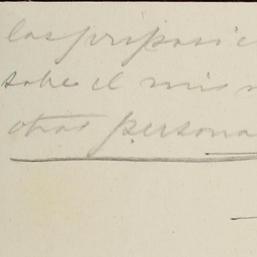 las preposic
sobre el mis m
otras persona